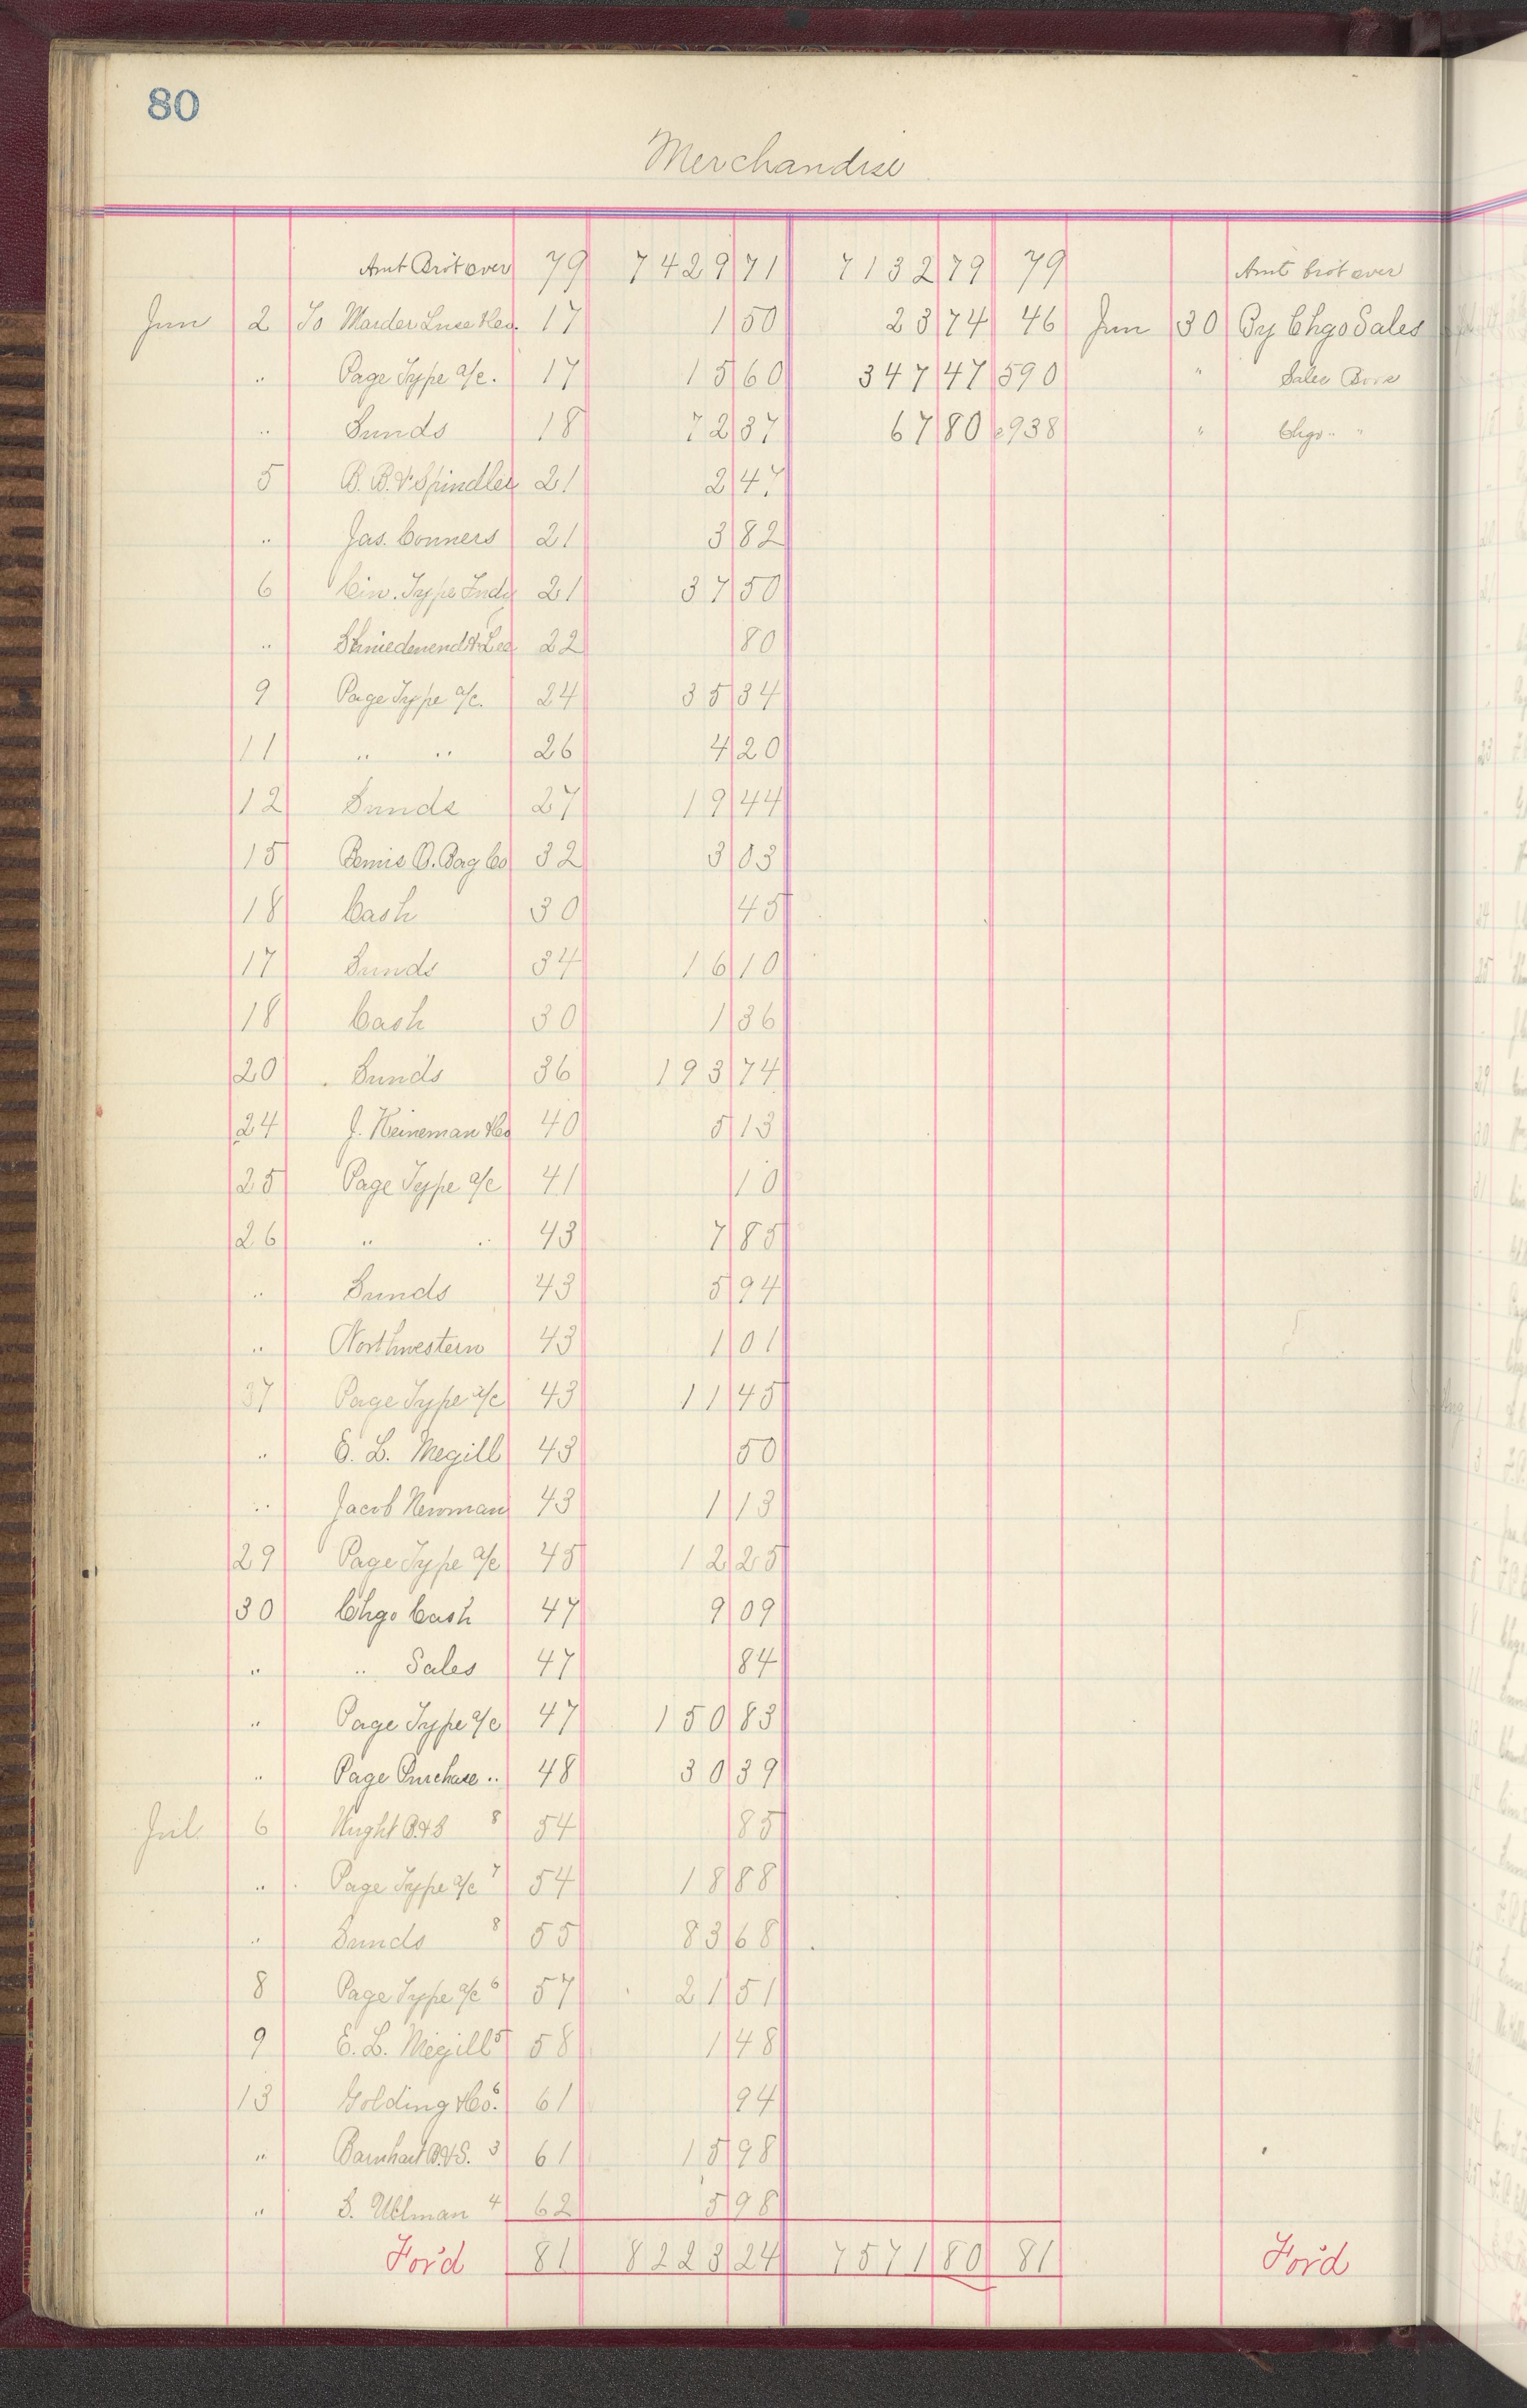 80
Merchandise
Amt Brót over 79 7429 71 7132 79 79 Amt brót over
Jun 2 To Marder Luse &Co. 17 1 50 23 74 46 Jun 30 By Chgo Sales
" Page Type a/c. 17 15 60 347 47 590 " Sales Book
" Sunds 18 72 37 67 80 938 " Chgo " "
5 B. B. & Spindler 21 2 47
" Jas. Conners 21 3 82
6 Cin. Type Fndy 21 37 50
" Shniedewend & Lee 22 80
9 Page Type a/c. 24 35 34
11 " " 26 4 20
12 Sunds 27 19 44
15 Bemis B. Bag Co 32 3 03
18 Cash 30 45
17 Sunds 34 16 10
18 Cash 30 1 36
20 Sunds 36 193 74
24 J. Heineman &Co 40 5 13
25 Page Type a/c 41 10
26 " " 43 7 85
" Sunds 43 5 94
" Northwestern 43 1 01
27 Page Type a/c 43 11 45
" E. L. Megill 43 50
" Jacob Newman 43 1 13
29 Page Type a/c 45 12 25
30 Chgo Cash 47 9 09
" " Sales 47 84
" Page Type a/c 47 150 83
" Page Purchase " 48 30 39
Jul. 6 B&S 8 54 85
" Page Type a/c 7 54 18 88
" Sunds 8 55 83 68
8 Page Type a/c 6 57 21 51
9 E. L. Megill 5 58 1 48
13 Golding &Co. 6 61 94
" Barnhart B.&S. 3 61 15 98
" S. Ullman 4 62 5 98
For'd 81 8223 24 7571 80 81 For'd